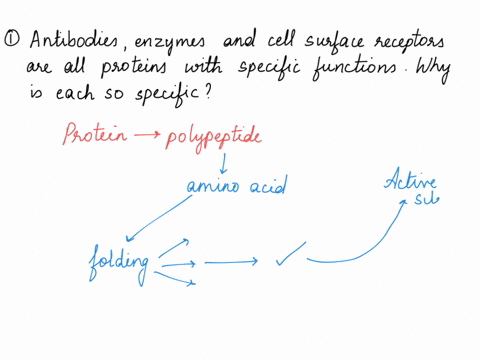 ① Antibodies, enzymes and cell surface receptors
are all proteins with specific functions. Why
is each so specific?
Protein → polypeptide
amino acid
Active
folding